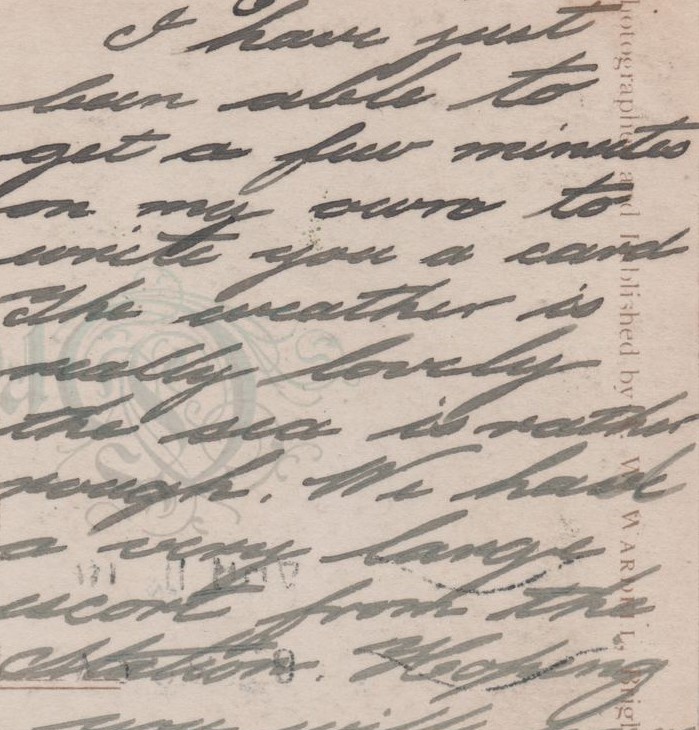 I have just
been able to
get a few minutes
on my own to
write you a card
The weather is
really lovely
the sea is rather
rough. We have
a very large
escort from the
Station. Hoping
you will
Photographed and Published by W. WARDELL Brigh